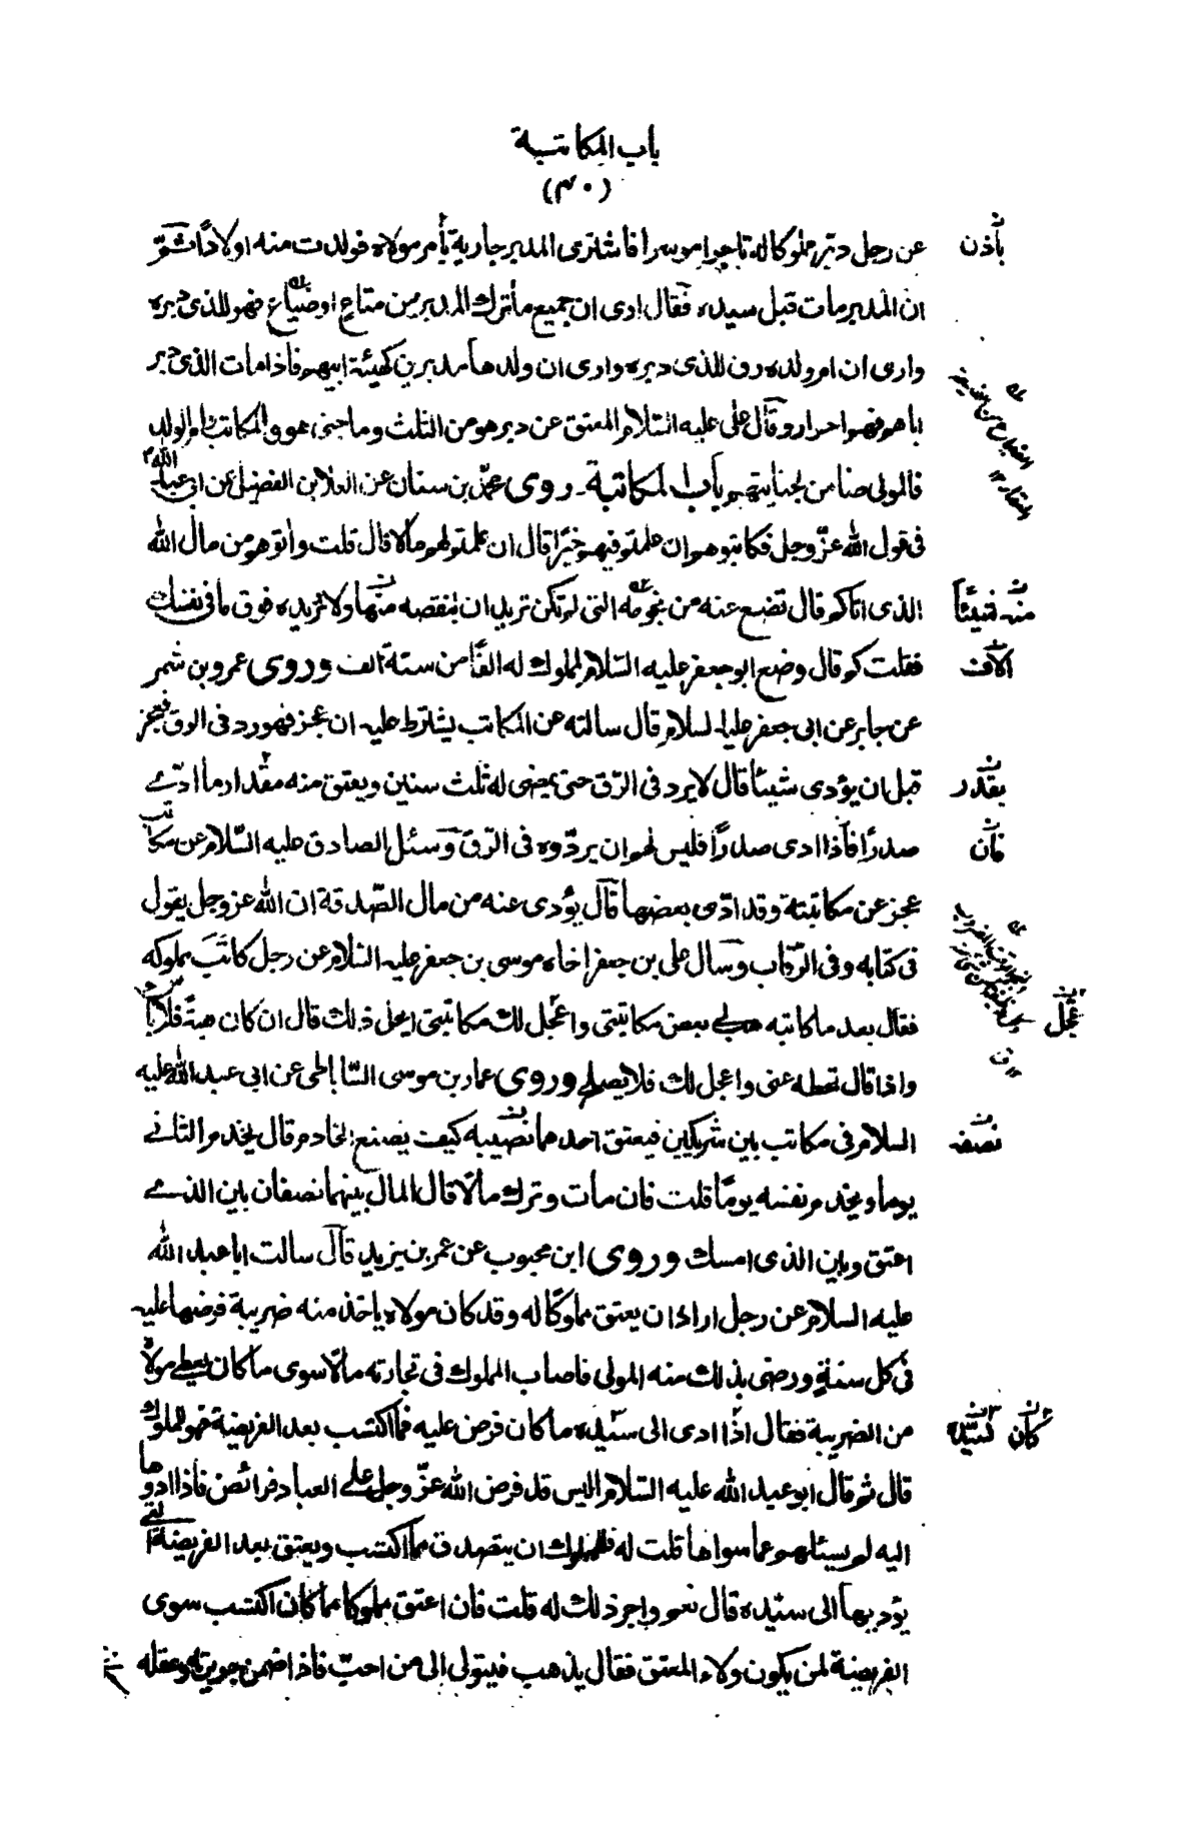 باب المكاتبة
(٣٠)
عن رجل دبّر مملوكا له تاجرا موسرا فاشترى المدبر جارية بأمر مولاه فولدت منه اولادًا ثمّ
ان المدبر مات قبل سيده فقال ارى ان جميع ما ترك المدبر من متاع او ضياع فهو للذى دبره
وارى ان ام ولده رق للذى دبره وارى ان ولدها مدبرين كهيئة ابيهم فاذا مات الذى دبر
اباهم فهم احرار وقال على عليه السّلام المعتق عن دبر هو من الثلث وما جنى هو والمكاتب وام الولد
فالمولى ضامن لجنايتهم باب المكاتبة روى محمّد بن سنان عن العلا بن الفضيل عن ابى عبد الله
فى قول الله عزّ وجل فكاتبوهم ان علمتم فيهم خيرًا قال ان علمتم لهم مالا قال قلت وأتوهم من مال الله
الذى اتاكم قال تضع عنه من نجومه التى لم تكن تريد ان تنقصه منها ولا تزيده فوق ما فى نفسك
فقلت كم قال وضع ابو جعفر عليه السّلام لمملوك له الفًا من ستة الف وروى عمرو بن شمر
عن جابر عن ابى جعفر عليه السلام قال سالته عن المكاتب يشترط عليه ان عجز فهو رد فى الرق فعجز
قبل ان يؤدى شيئًا قال لا يرد فى الرّق حتى يمضى له ثلث سنين ويعتق منه مقدار ما ادّى
صدرًا فاذا ادى صدرًا فليس لهم ان يردّوه فى الرّق وسئل الصادق عليه السّلام عن مكاتب
عجز عن مكاتبته وقد ادّى بعضها قال يؤدى عنه من مال الصّدقة ان الله عز وجل يقول
فى كتابه وفى الرّقاب وسال على بن جعفر اخاه موسى بن جعفر عليه السّلام عن رجل كاتَبَ مملوكه
فقال بعد ما كاتبه هب لى بعض مكاتبتى واعجّل لك مكاتبتى ايحل ذلك قال ان كان هبةً فلا بأس
واذا قال تحطه عنى واعجل لك فلا يصلح وروى عمار بن موسى السّاباطى عن ابى عبد الله عليه
السلام فى مكاتب بين شريكين فيعتق احدهما نصيبه كيف يصنع الخادم قال يخدم الثانى
يوما ويخدم نفسه يومًا قلت فان مات وترك مالًا قال المال بينهما نصفان بين الذى
اعتق وبين الذى امسك وروى ابن محبوب عن عمر بن يزيد قال سالت ابا عبد الله
عليه السلام عن رجل اراد ان يعتق مملوكًا له وقد كان مولاه ياخذ منه ضريبة فرضها عليه
فى كل سنةٍ ورضى بذلك منه المولى فاصاب المملوك فى تجارته مالًا سوى ما كان يعطى مولاه
من الضريبة فقال اذا ادى الى سيّده ما كان فرض عليه فما اكتسب بعد الفريضة فهو للمملوك
قال ثم قال ابو عبد الله عليه السّلام اليس قد فرض الله عزّ وجل على العباد فرائض فاذا ادوها
اليه لم يسئلهم عما سواها قلت له فللمملوك ان يتصدق مما اكتسب ويعتق بعد الفريضة التى
يؤديها الى سيّده قال نعم واجر ذلك له قلت فان اعتق مملوكا مما كان اكتسب سوى
الفريضة لمن يكون ولاء المعتق فقال يذهب فيتولى الى من احبّ فاذا ضمن جريرته وعقله
بأذن
منه شيئاً
الاف
بقدر
فأن
عجّل
نصفه
كأن لسيّده